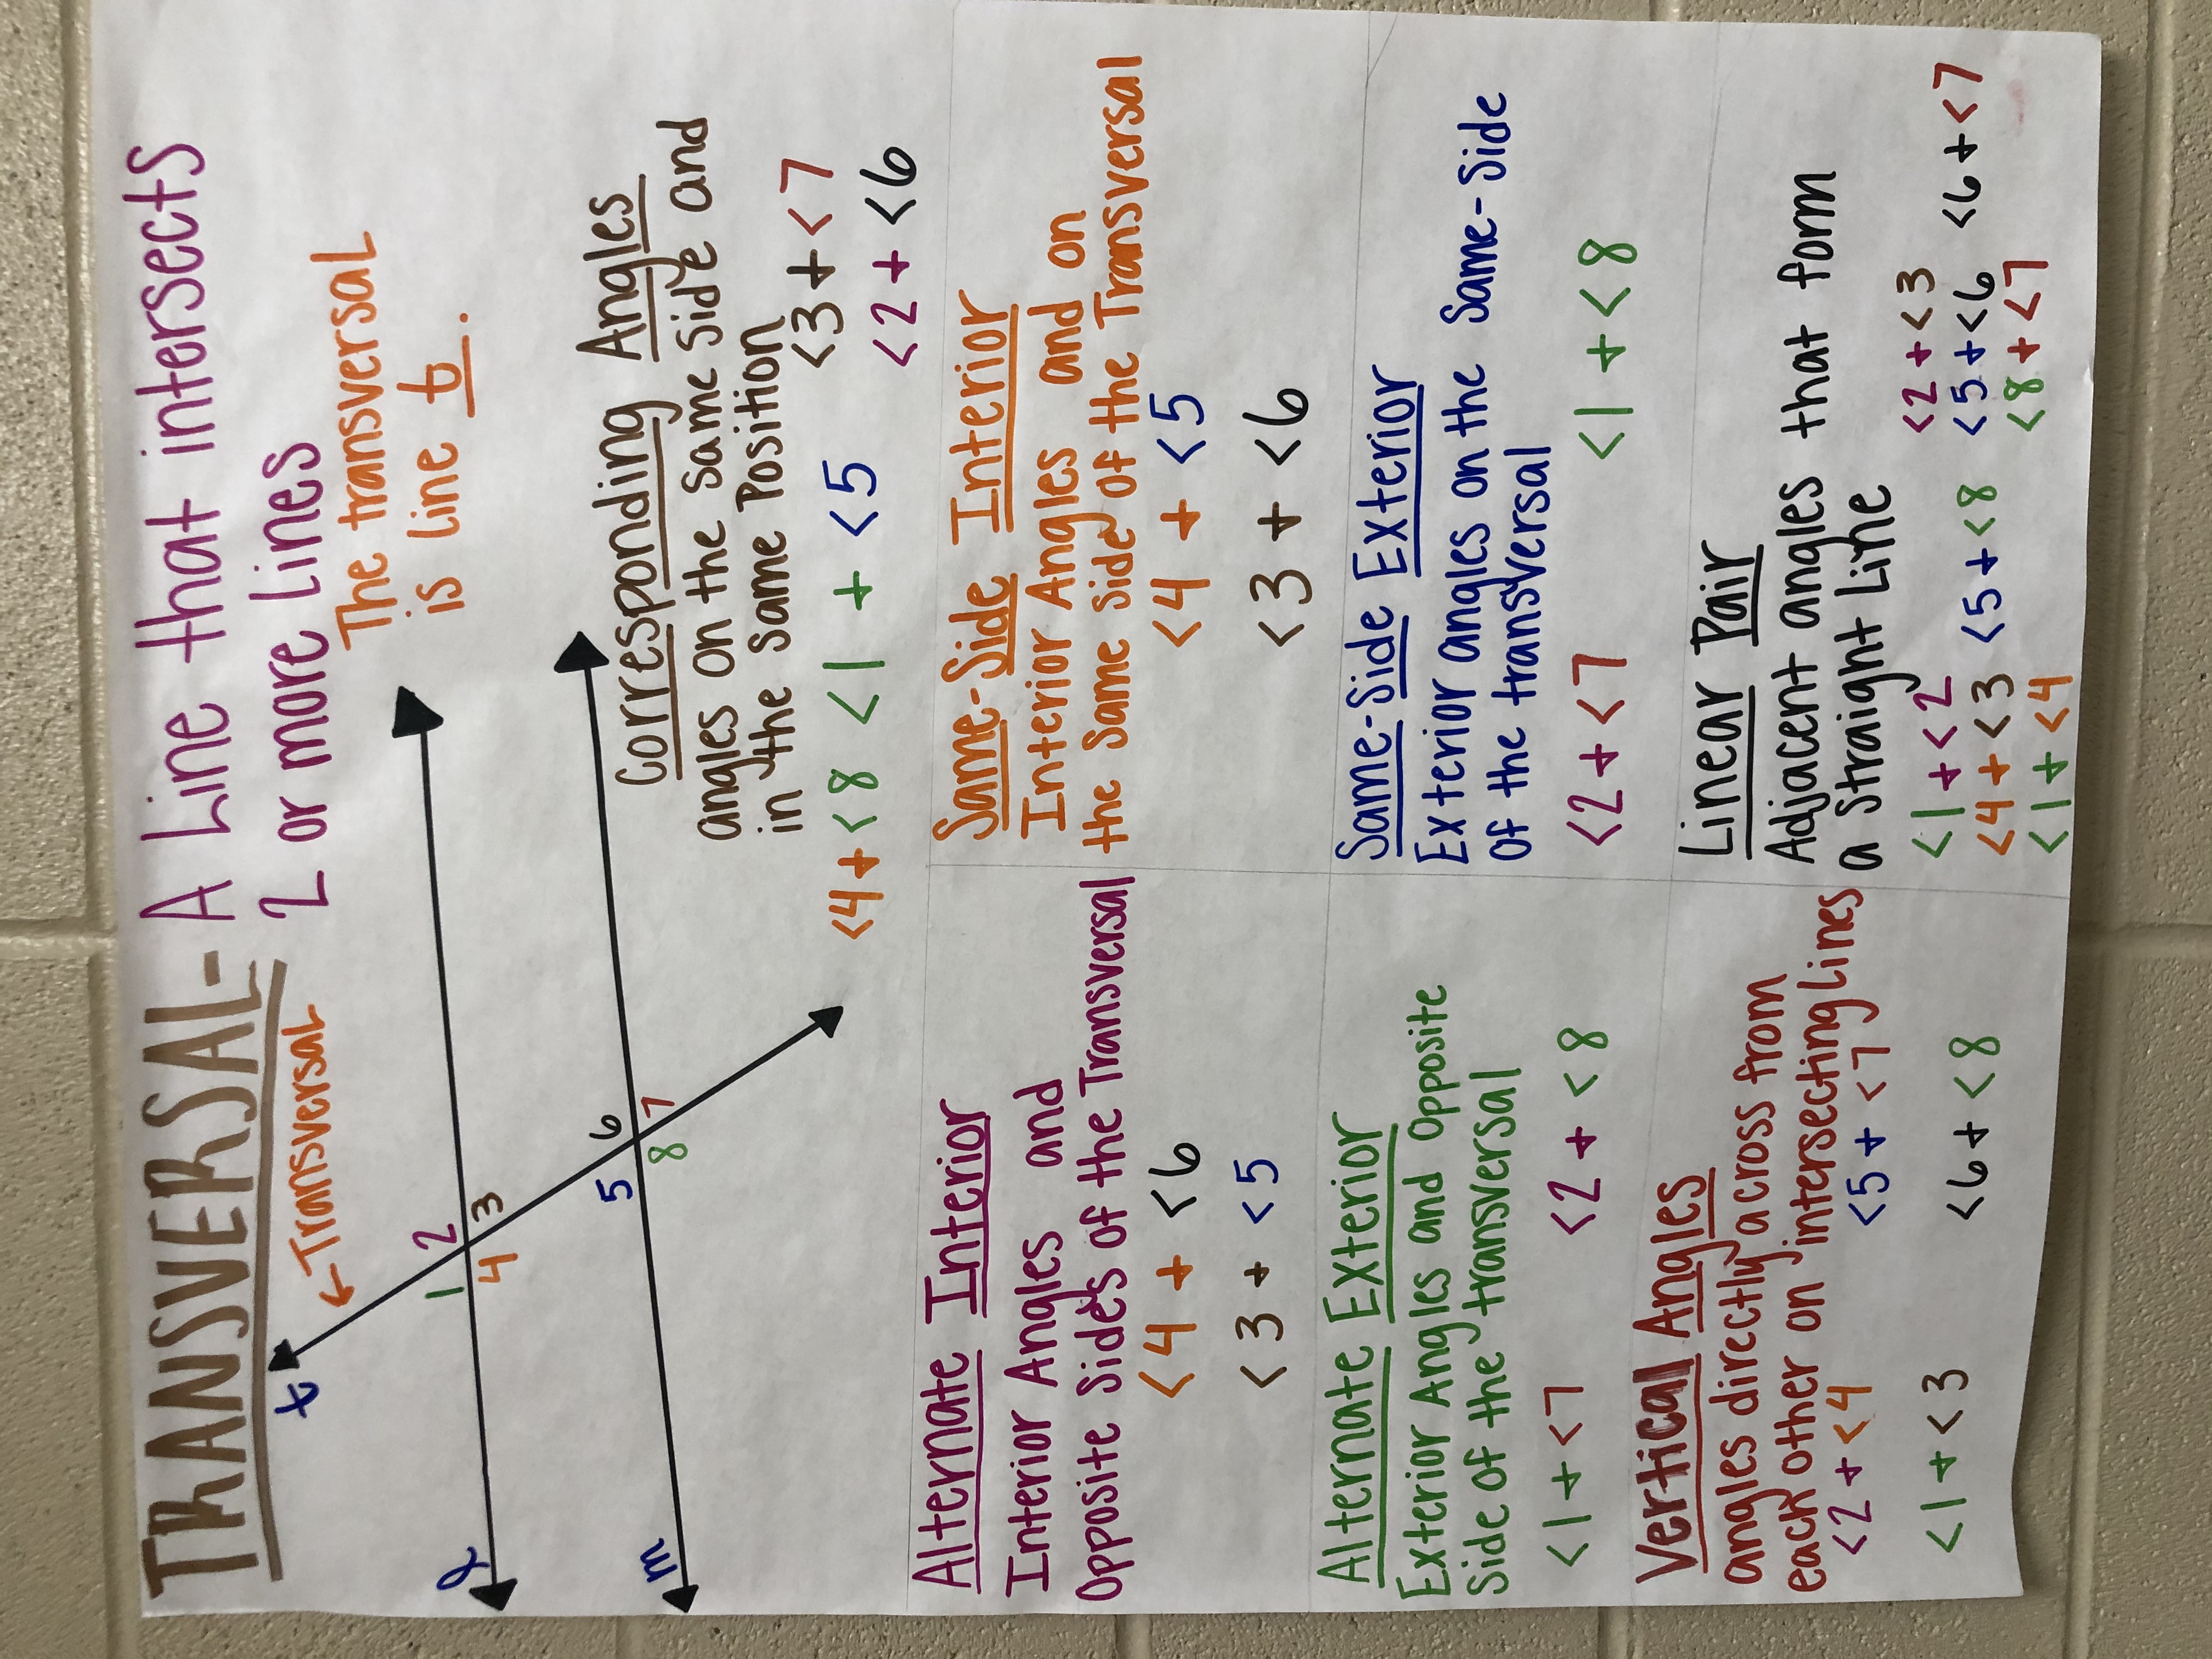 TRANSVERSAL- A Line that intersects
2 or more Lines
←Transversal
The transversal
is line t.
t
1 2
4 3
l
5 6
8 7
m
Corresponding Angles
angles on the same side and
in the same Position
<4 + <8 <1 + <5 <3 + <7
<2 + <6
Alternate Interior
Interior Angles and
Opposite Sides of the Transversal
<4 + <6
<3 + <5
Same-Side Interior
Interior Angles and on
the Same side of the Transversal
<4 + <5
<3 + <6
Alternate Exterior
Exterior Angles and Opposite
Side of the transversal
<1 + <7 <2 + <8
Same-Side Exterior
Exterior angles on the Same-Side
of the transversal
<2 + <7 <1 + <8
Vertical Angles
angles directly across from
each other on intersecting lines
<2 + <4 <5 + <7
<1 + <3 <6 + <8
Linear Pair
Adjacent angles that form
a straight Line
<1 + <2 <5 + <8 <2 + <3 <6 + <7
<4 + <3 <5 + <6
<1 + <4 <8 + <7